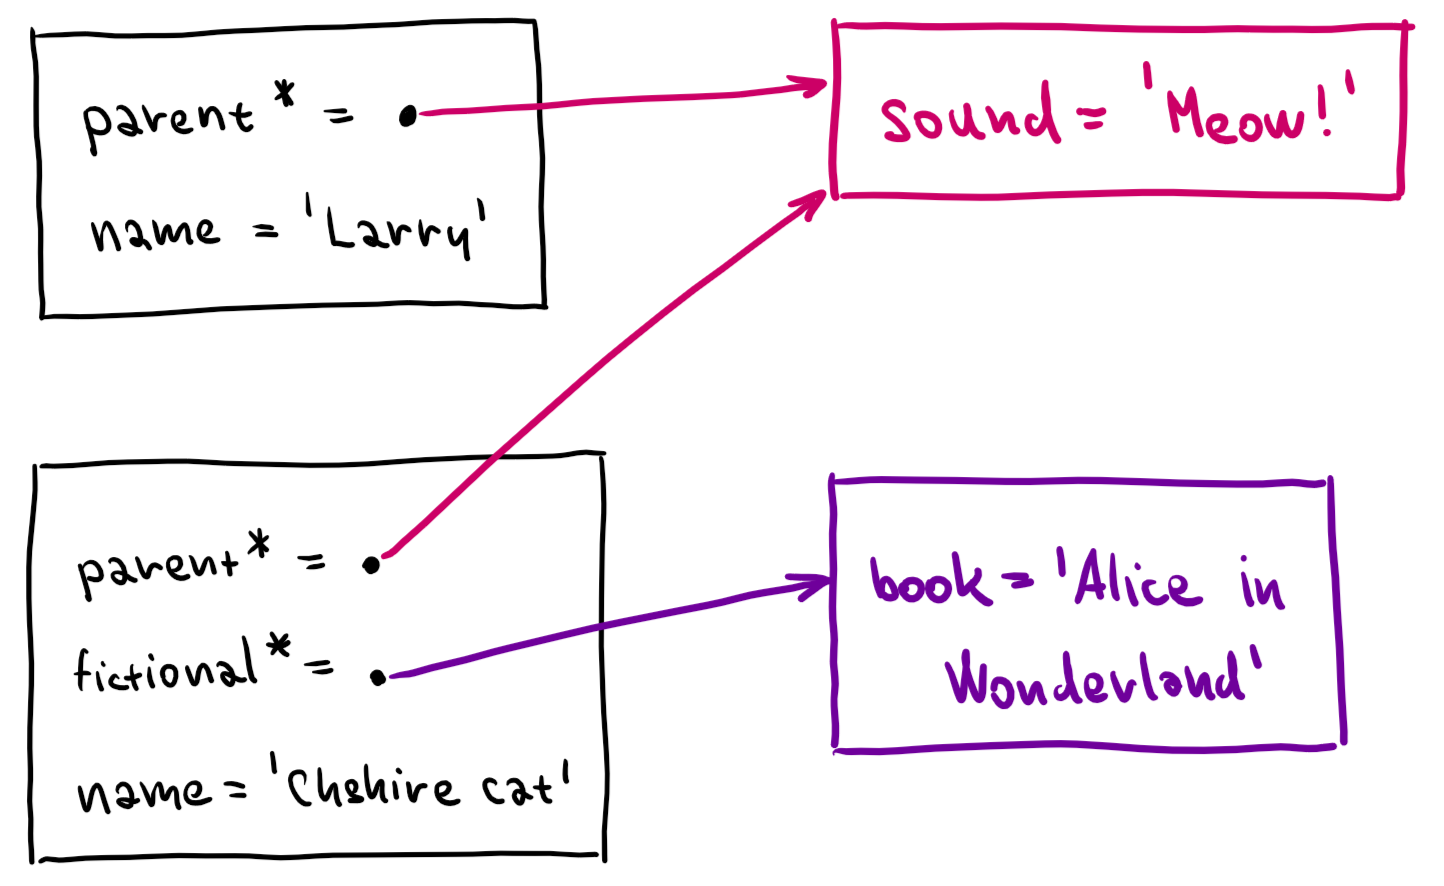 parent* = •
name = 'Larry'
sound = 'Meow!'
parent* = •
fictional* = •
name = 'Chshire cat'
book = 'Alice in
Wonderland'